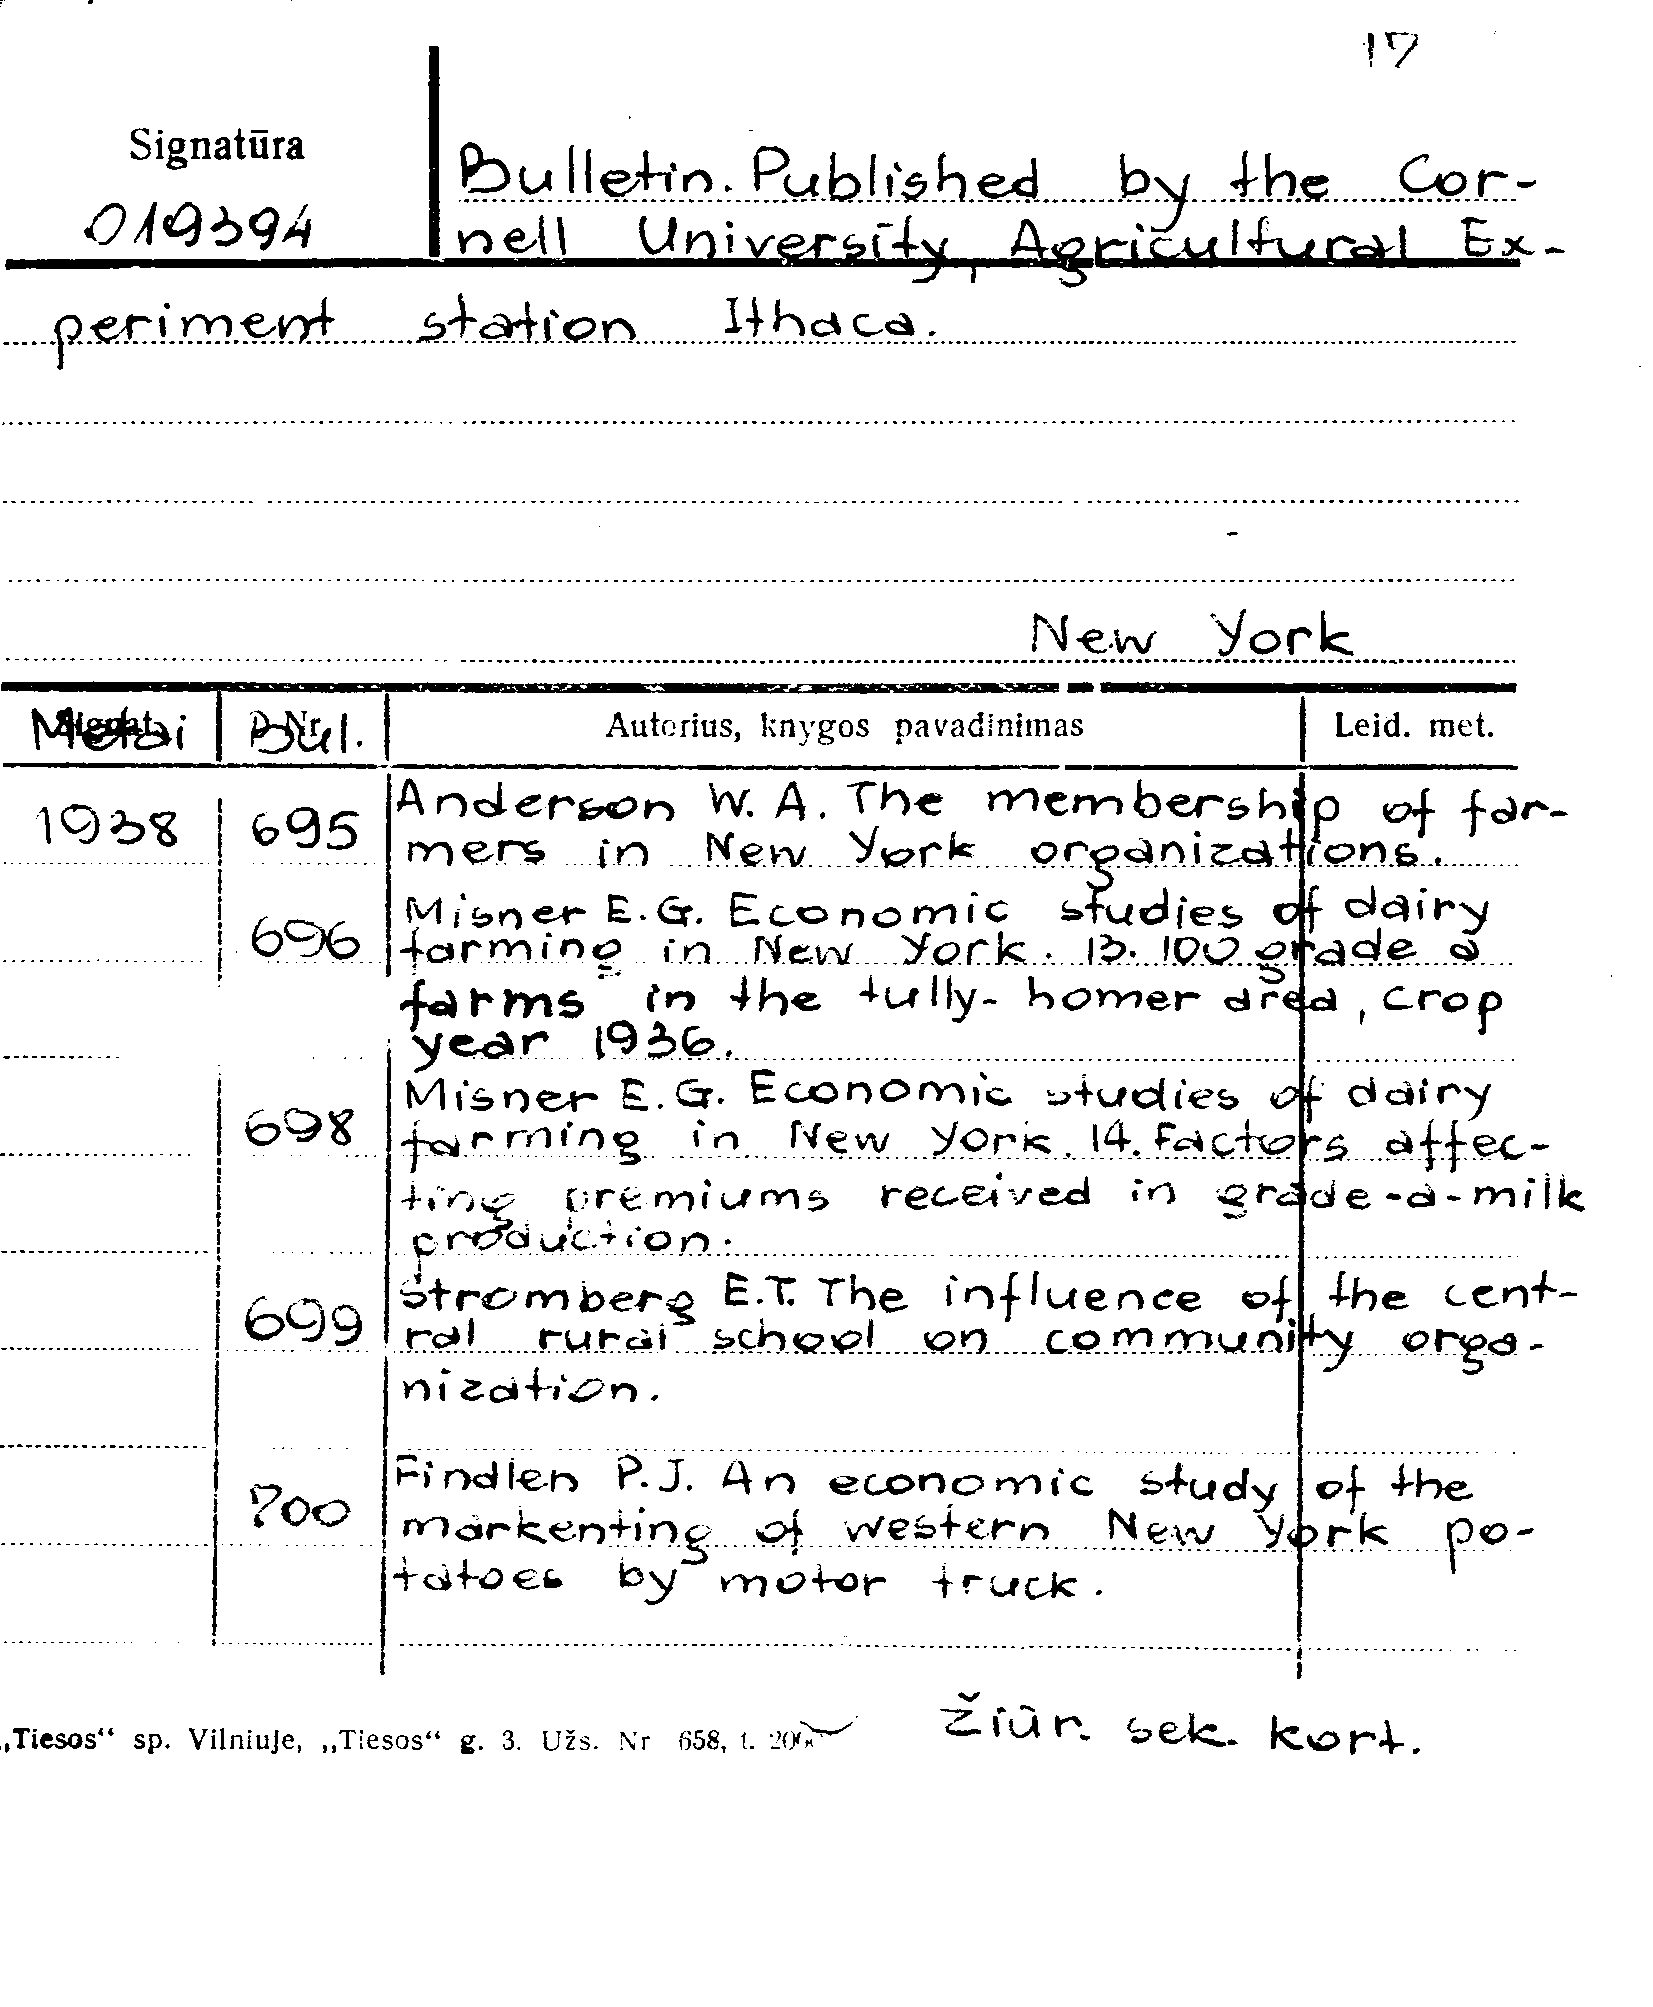 17
Signatūra
019394
Bulletin. Published by the Cor-
nell University, Agricultural Ex-
periment station Ithaca.
New York
Metai Bul. Autorius, knygos pavadinimas Leid. met.
1938 695 Anderson W. A. The membership of far-
mers in New York organizations.
696 Misner E. G. Economic studies of dairy
farming in New York. 13. 100 grade a
farms in the tully-homer area, crop
year 1936.
698 Misner E. G. Economic studies of dairy
farming in New York. 14. Factors affec-
ting premiums received in grade-a-milk
production.
699 Stromberg E. T. The influence of the cent-
ral rural school on community orga-
nization.
700 Findlen P. J. An economic study of the
markenting of western New York po-
tatoes by motor truck.
„Tiesos“ sp. Vilniuje, „Tiesos“ g. 3. Užs. Nr 658, t.
Žiūr. sek. kort.